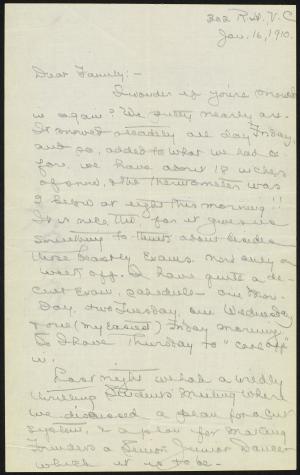 302 R.H. V.C.
Jan. 16, 1910.
Dear Family:-
I wonder if you're snowed
in again? We pretty nearly are.
It snowed steadily all day Friday,
and so, added to what we had be-
fore, we have about 18 inches
of snow, & the thermometer was
2 below at eight this morning!!
It is nice tho' for it gives us
something to think about besides
those beastly Exams. now only a
week off. I have quite a de-
cent Exam. schedule - one Mon-
day, two Tuesday, one Wednesday
& one (my easiest) Friday morning
So I have Thursday to "cool off"
in.
Last night we had a wildly
thrilling Students' Meeting where
we discussed a plan for a Cut
System, & a plan for making
Founder's a Senior Junior Dance
which it is to be.